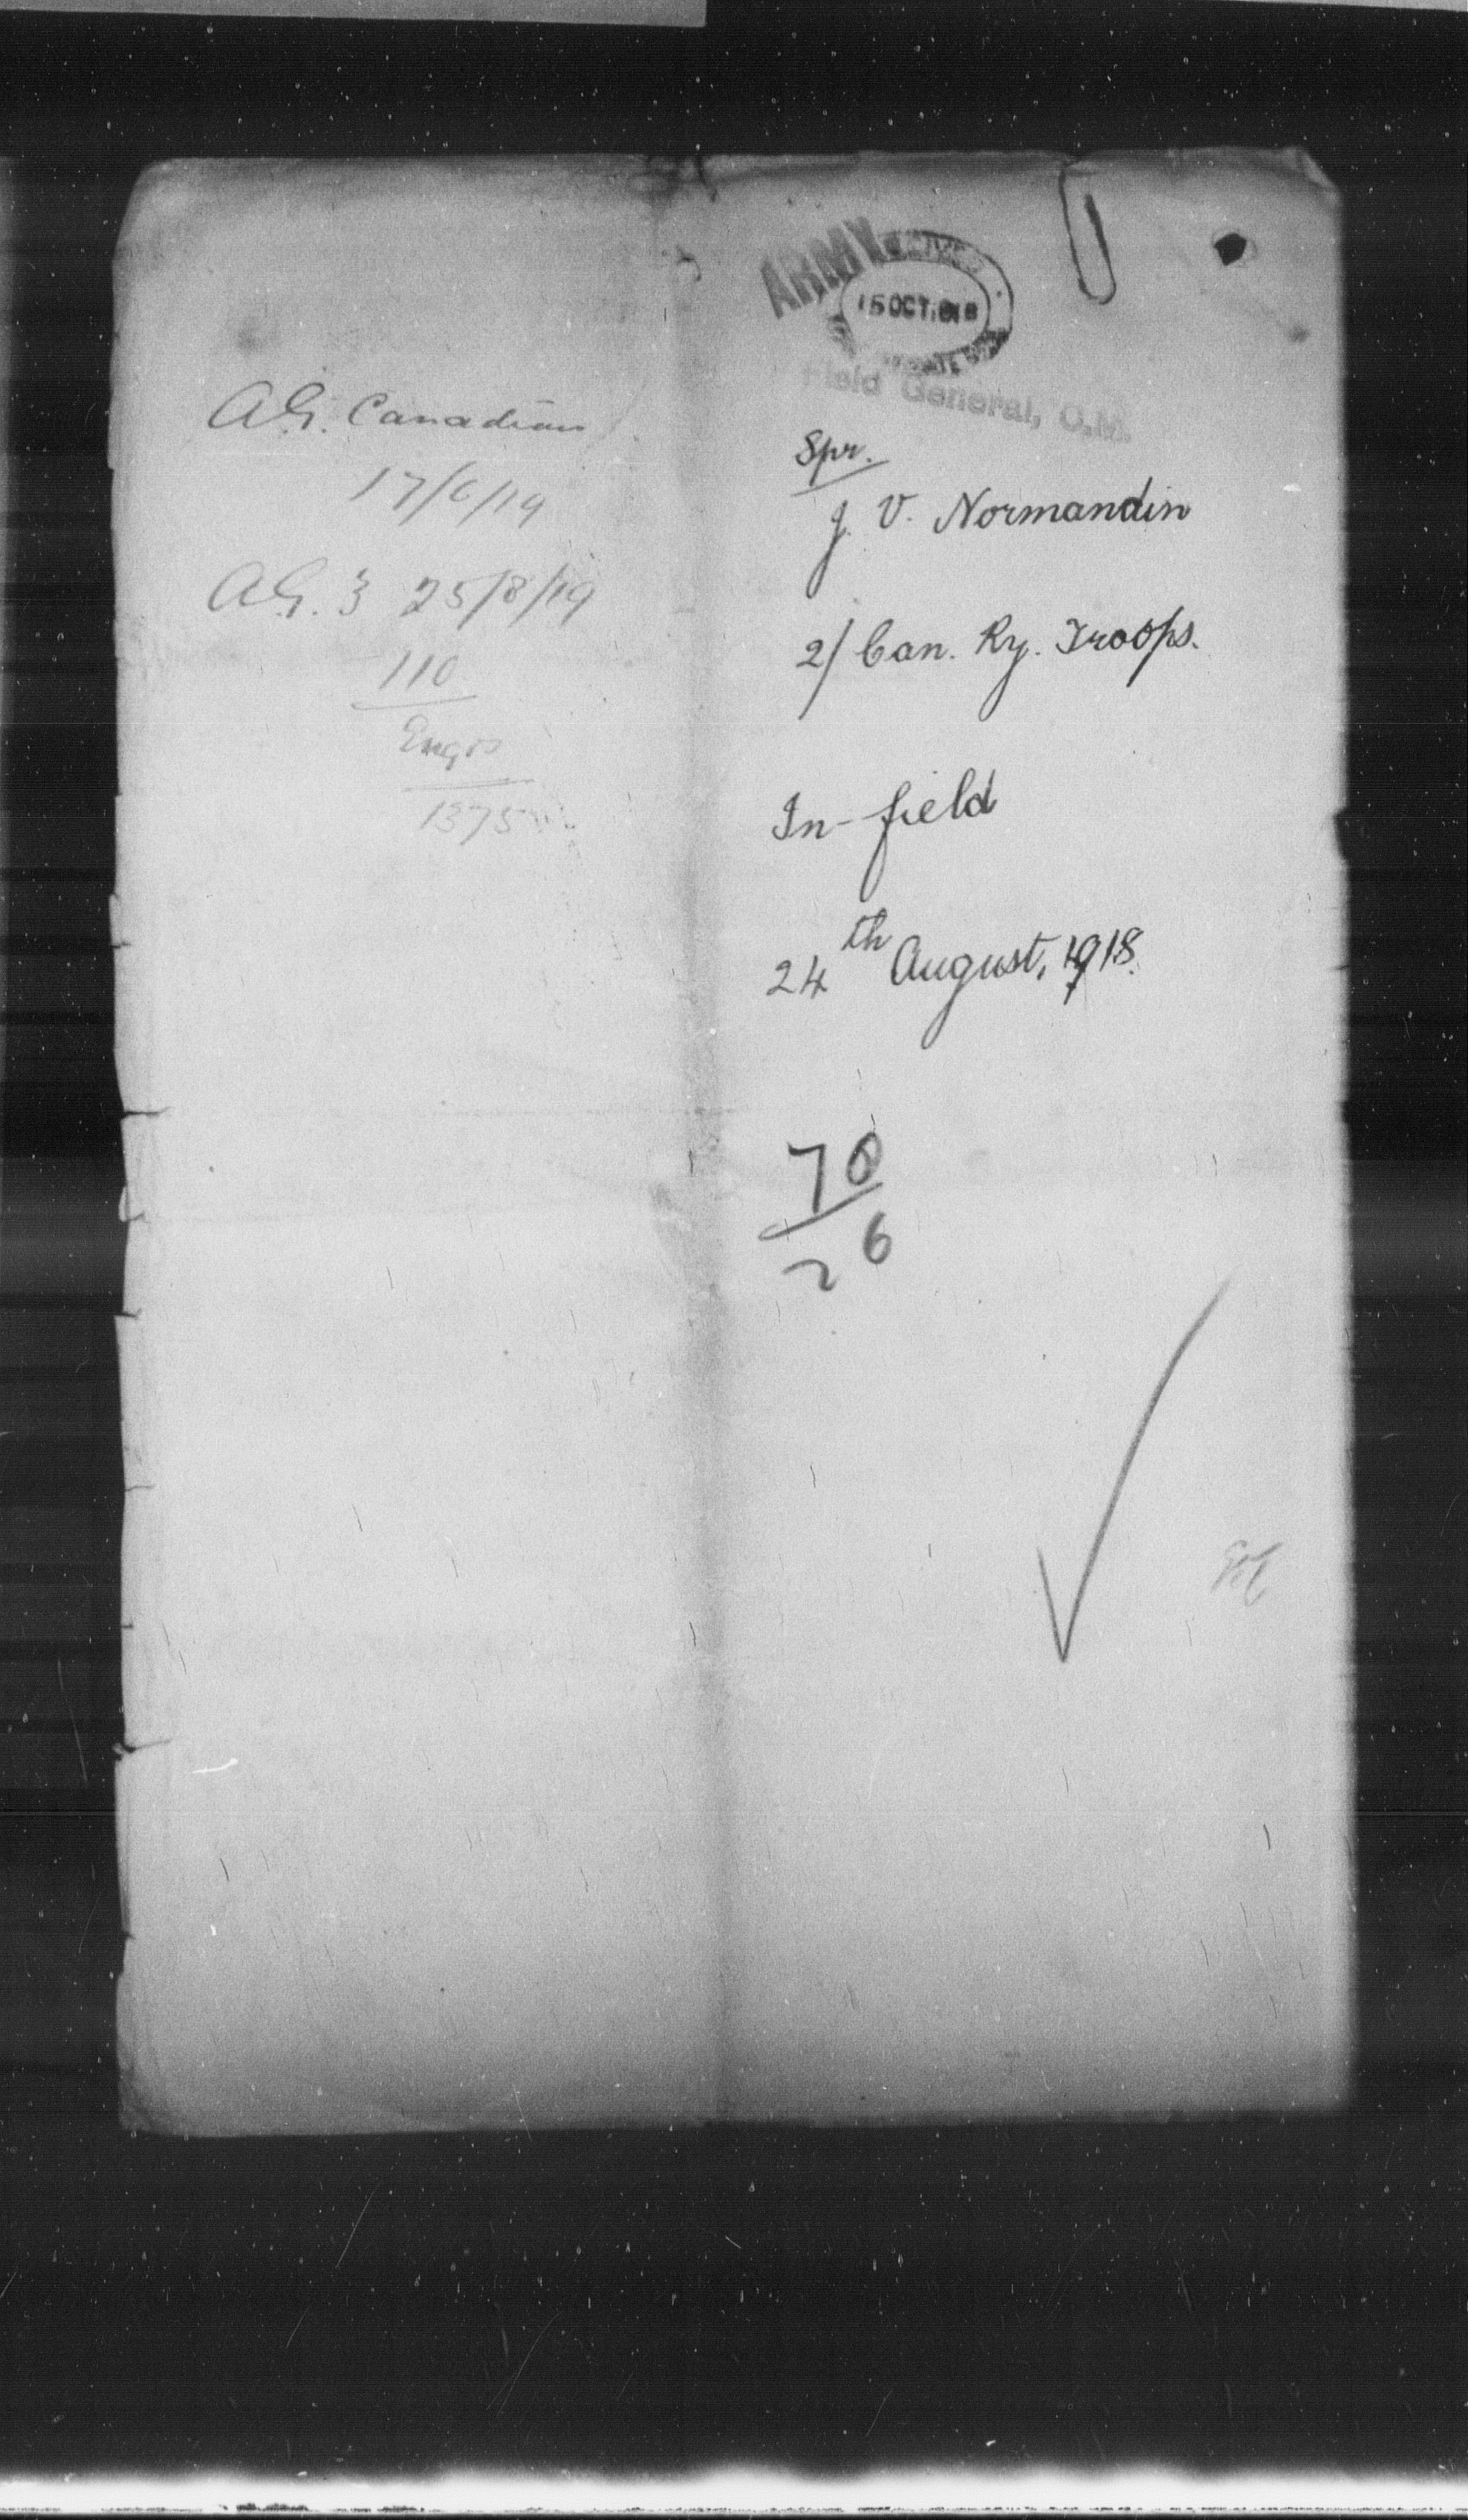 A.G. Canadian
17/6/19
A.G. 3 25/8/19
110
Engrs
1375
ARMY
15 OCT. 1918
Field General, C.M.
Spr.
J. V. Normandin
2/ Can. Ry. Troops.
In-field
24th August, 1918.
70
26